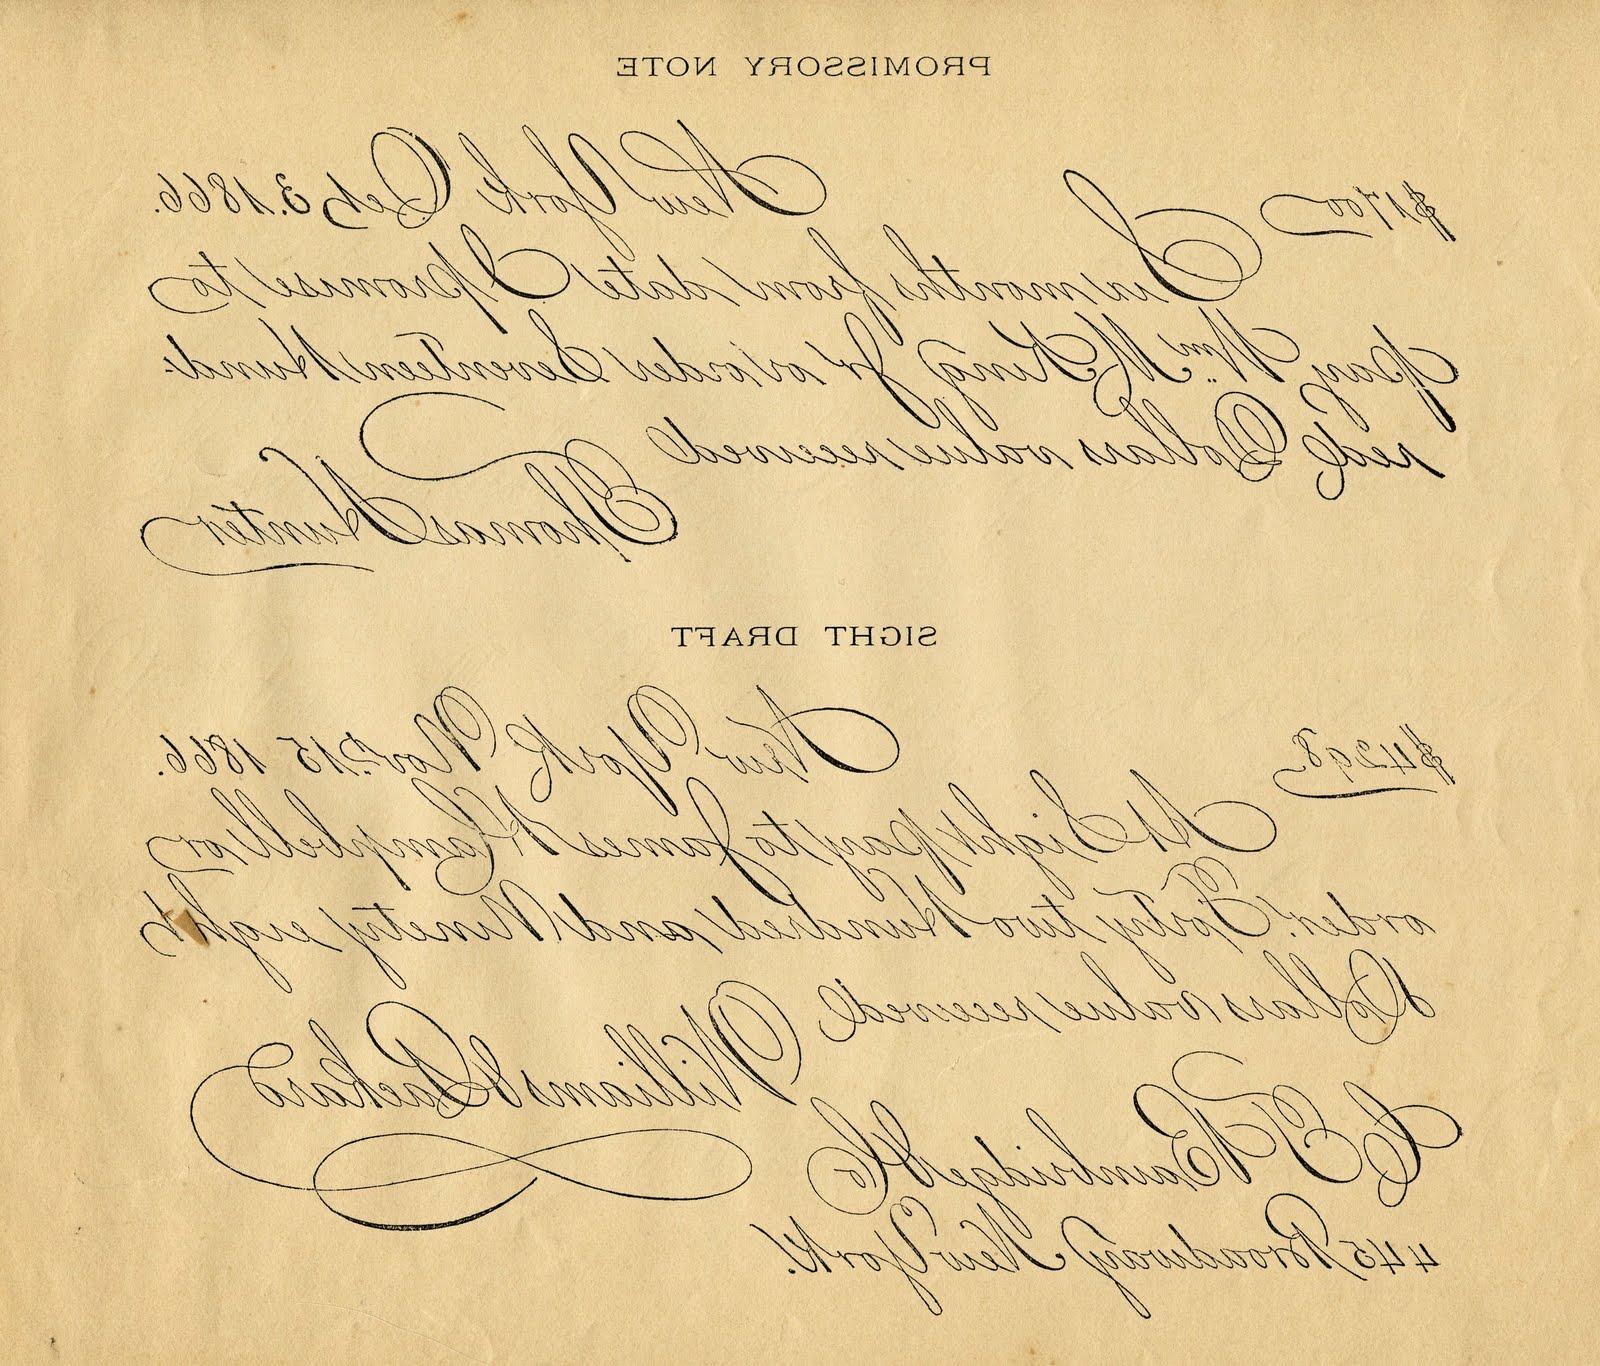 PROMISSORY NOTE
$1700 New York Oct 3. 1866.
Six months from date I promise to
pay Wm. M King Jr or order Seventeen Hund-
red Dollars value received
Thomas Hunter
SIGHT DRAFT
$4298 New York Nov. 15 1866.
At Sight pay to James H Campbell or
order. Forty two Hundred and Ninety eight
Dollars value received
Williams & Packard
To E W Bainbridge & Co
445 Broadway New York.